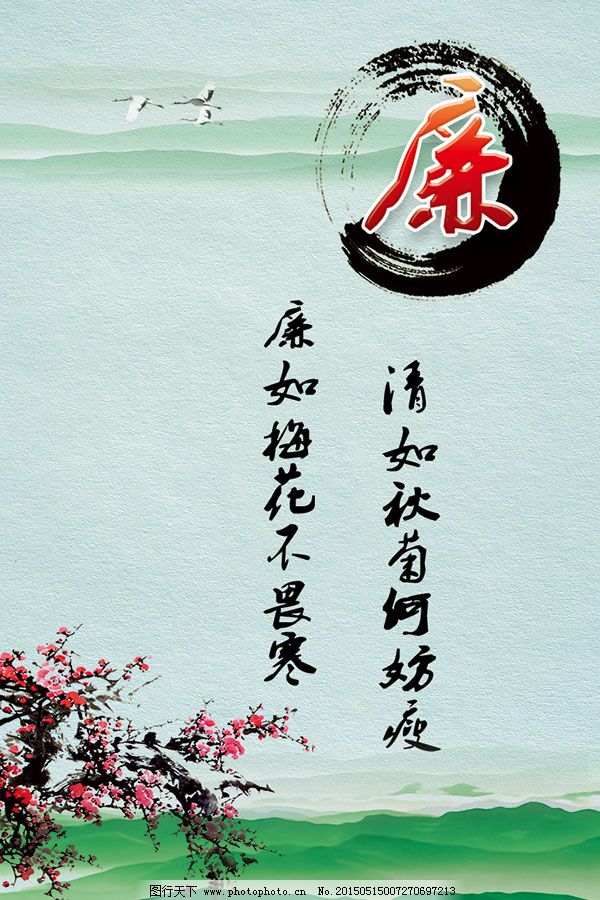 廉
清如秋菊何妨瘦
廉如梅花不畏寒
图行天下 www.photophoto.cn No.20150515007270697213